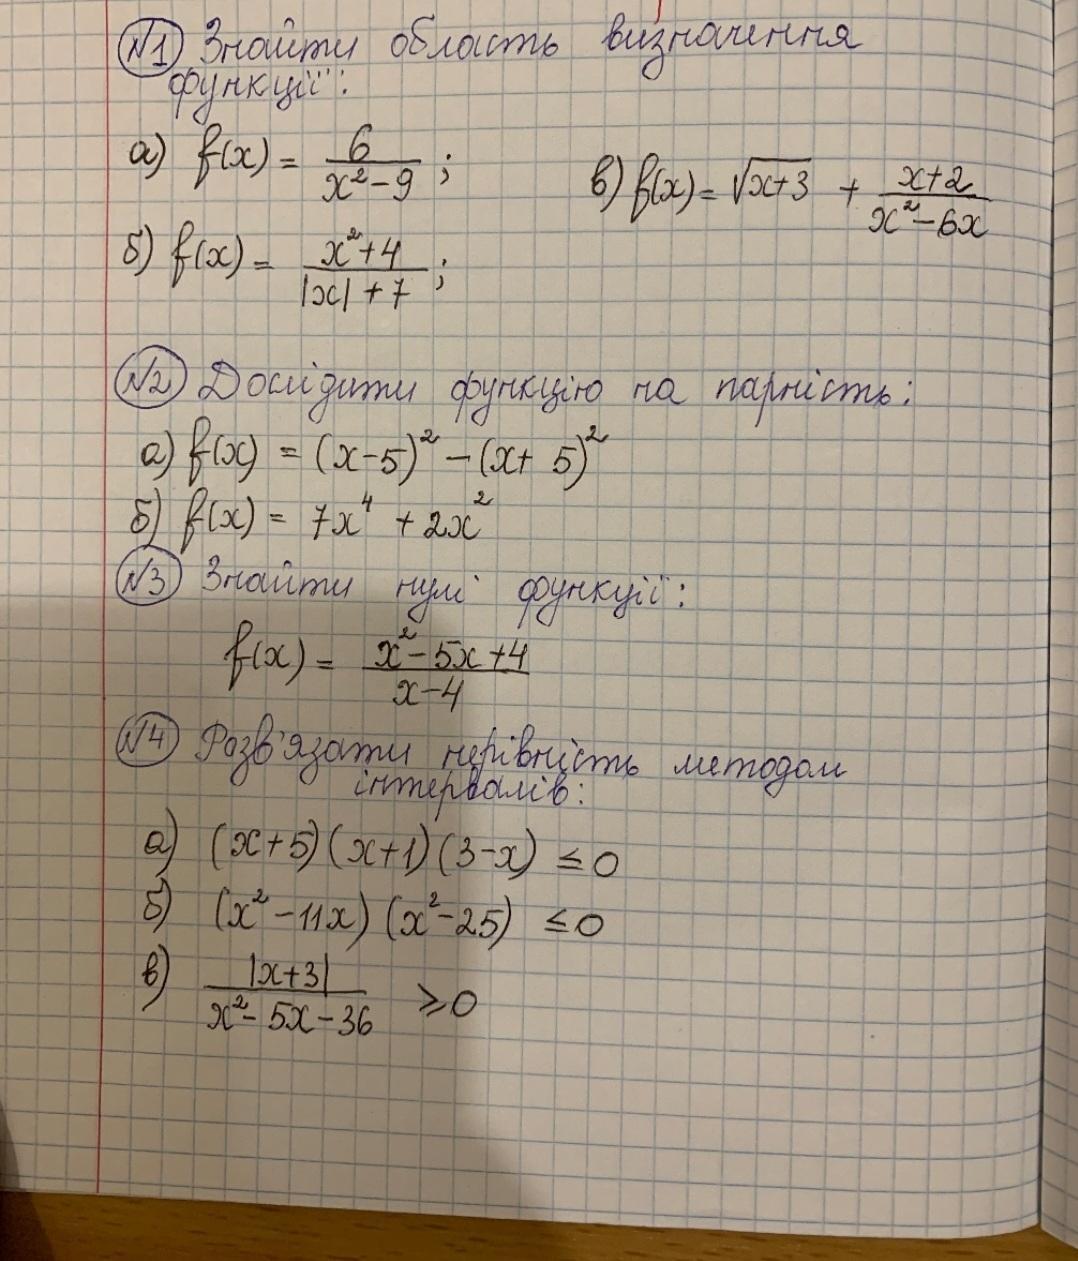 №1 Знайти область визначення
функції:
а) f(x) = 6/(x² - 9);
в) f(x) = √(x+3) + (x+2)/(x² - 6x)
б) f(x) = (x² + 4)/(|x| + 7);
№2 Дослідити функцію на парність:
а) f(x) = (x-5)² - (x+5)²
б) f(x) = 7x⁴ + 2x²
№3 Знайти нулі функції:
f(x) = (x² - 5x + 4)/(x - 4)
№4 Розв'язати нерівність методом
інтервалів:
а) (x+5)(x+1)(3-x) ≤ 0
б) (x² - 11x)(x² - 25) ≤ 0
в) |x+3|/(x² - 5x - 36) ≥ 0